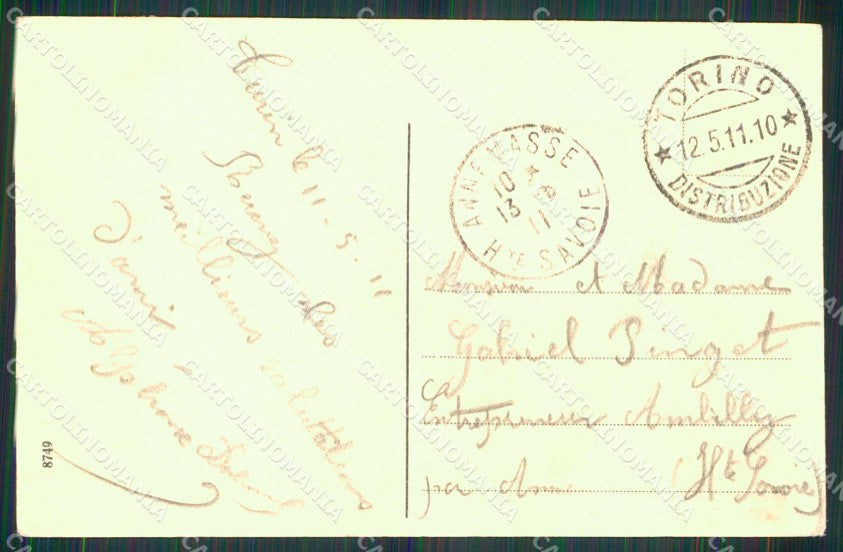 Turin le 11-5-11
Recevez les
meilleurs salutations
d'ami
Alphonse
8749
TORINO
12.5.11.10
DISTRIBUZIONE
ANNEMASSE
10
13 11
Hte SAVOIE
Monsieur et Madame
Gabriel Penget
Entrepreneur Ambilly
par Anne (Hte Savoie)
CARTOLINOMANIA